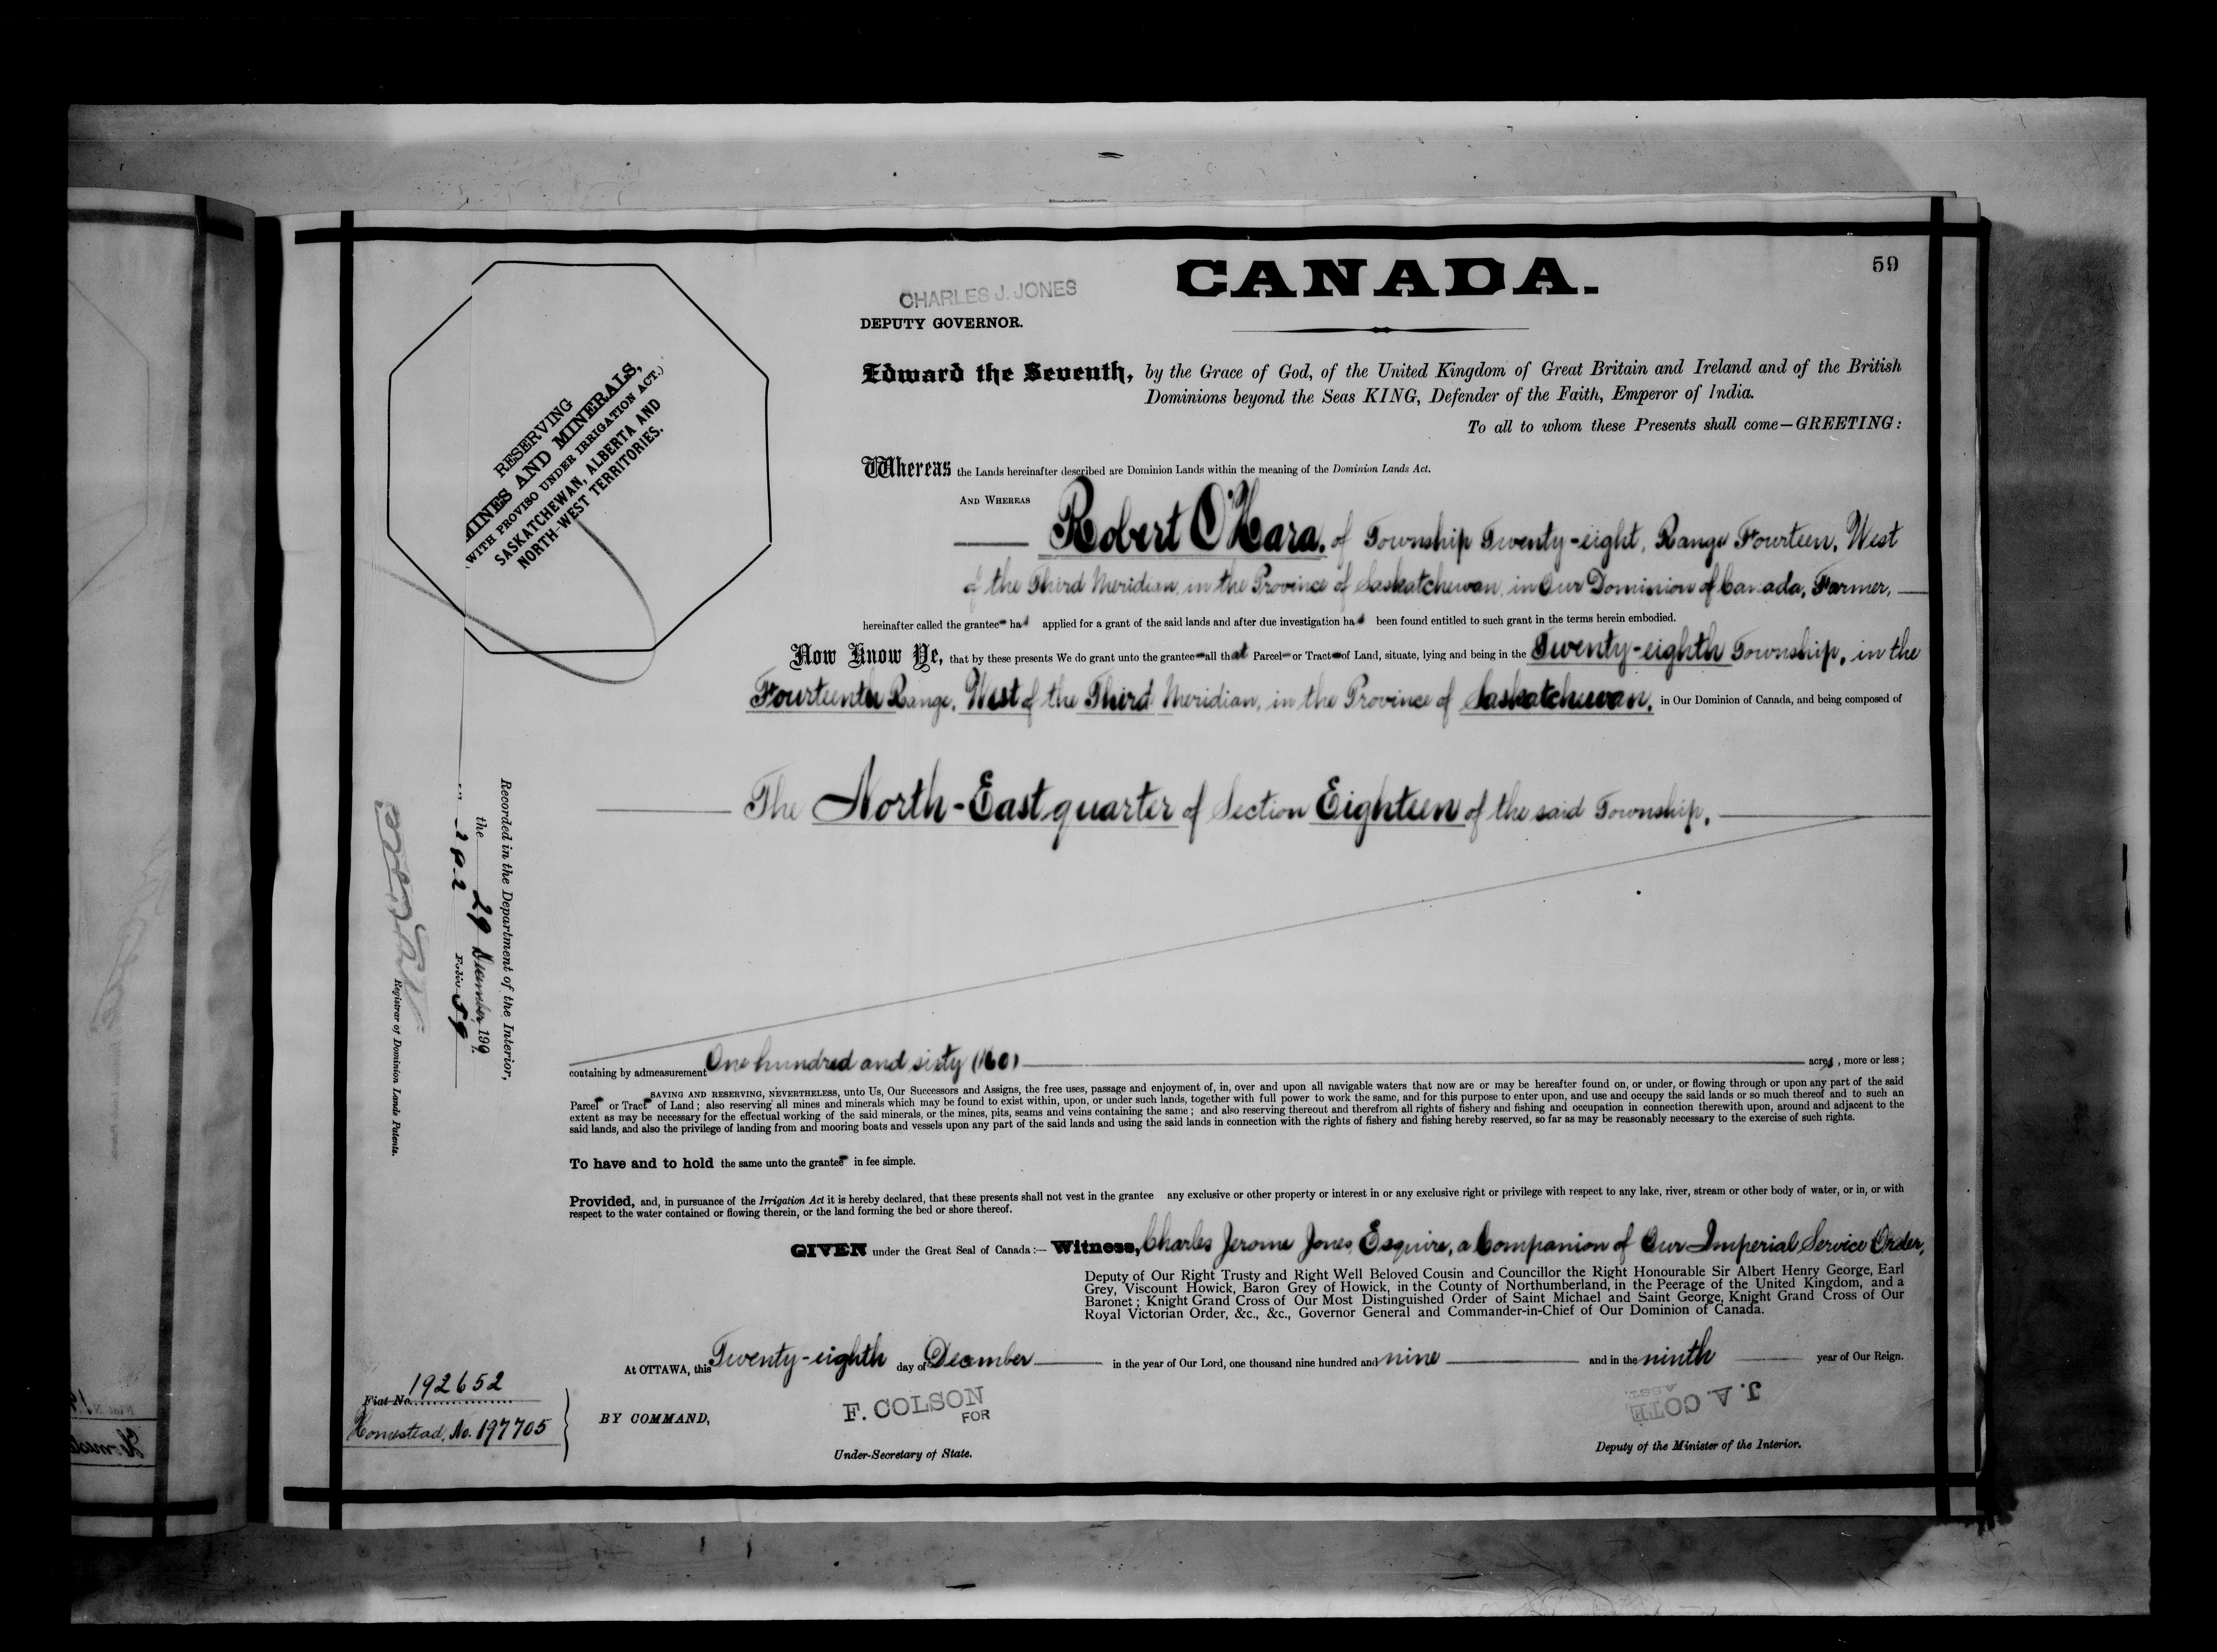 59
CANADA.
CHARLES J. JONES
DEPUTY GOVERNOR.
RESERVING
MINES AND MINERALS,
(WITH PROVISO UNDER IRRIGATION ACT.)
SASKATCHEWAN, ALBERTA AND
NORTH-WEST TERRITORIES.
Edward the Seventh, by the Grace of God, of the United Kingdom of Great Britain and Ireland and of the British
Dominions beyond the Seas KING, Defender of the Faith, Emperor of India.
To all to whom these Presents shall come—GREETING:
Whereas the Lands hereinafter described are Dominion Lands within the meaning of the Dominion Lands Act.
AND WHEREAS
Robert O'Hara, of Township Twenty-eight, Range Fourteen, West
of the Third Meridian, in the Province of Saskatchewan, in Our Dominion of Canada, Farmer,
hereinafter called the grantee has applied for a grant of the said lands and after due investigation has been found entitled to such grant in the terms herein embodied.
Now Know Ye, that by these presents We do grant unto the grantee all that Parcel or Tract of Land, situate, lying and being in the Twenty-eighth Township, in the
Fourteenth Range, West of the Third Meridian, in the Province of Saskatchewan, in Our Dominion of Canada, and being composed of
The North-East quarter of Section Eighteen of the said Township,
Recorded in the Department of the Interior,
the 29 December, 1909.
202 Folio 59
Registrar of Dominion Lands Patents.
containing by admeasurement One hundred and sixty (160) acres, more or less;
SAVING AND RESERVING, NEVERTHELESS, unto Us, Our Successors and Assigns, the free uses, passage and enjoyment of, in, over and upon all navigable waters that now are or may be hereafter found on, or under, or flowing through or upon any part of the said
Parcel or Tract of Land; also reserving all mines and minerals which may be found to exist within, upon, or under such lands, together with full power to work the same, and for this purpose to enter upon, and use and occupy the said lands or so much thereof and to such an
extent as may be necessary for the effectual working of the said minerals, or the mines, pits, seams and veins containing the same; and also reserving thereout and therefrom all rights of fishery and fishing and occupation in connection therewith upon, around and adjacent to the
said lands, and also the privilege of landing from and mooring boats and vessels upon any part of the said lands and using the said lands in connection with the rights of fishery and fishing hereby reserved, so far as may be reasonably necessary to the exercise of such rights.
To have and to hold the same unto the grantee in fee simple.
Provided, and, in pursuance of the Irrigation Act it is hereby declared, that these presents shall not vest in the grantee any exclusive or other property or interest in or any exclusive right or privilege with respect to any lake, river, stream or other body of water, or in, or with
respect to the water contained or flowing therein, or the land forming the bed or shore thereof.
GIVEN under the Great Seal of Canada:— Witness, Charles Jerome Jones, Esquire, a Companion of Our Imperial Service Order,
Deputy of Our Right Trusty and Right Well Beloved Cousin and Councillor the Right Honourable Sir Albert Henry George, Earl
Grey, Viscount Howick, Baron Grey of Howick, in the County of Northumberland, in the Peerage of the United Kingdom, and a
Baronet; Knight Grand Cross of Our Most Distinguished Order of Saint Michael and Saint George, Knight Grand Cross of Our
Royal Victorian Order, &c., &c., Governor General and Commander-in-Chief of Our Dominion of Canada.
At OTTAWA, this Twenty-eighth day of December in the year of Our Lord, one thousand nine hundred and nine and in the ninth year of Our Reign.
Fiat No. 192652
Homestead, No. 197705
BY COMMAND,
F. COLSON
FOR
Under-Secretary of State.
J. A. COTÉ
ASST.
Deputy of the Minister of the Interior.